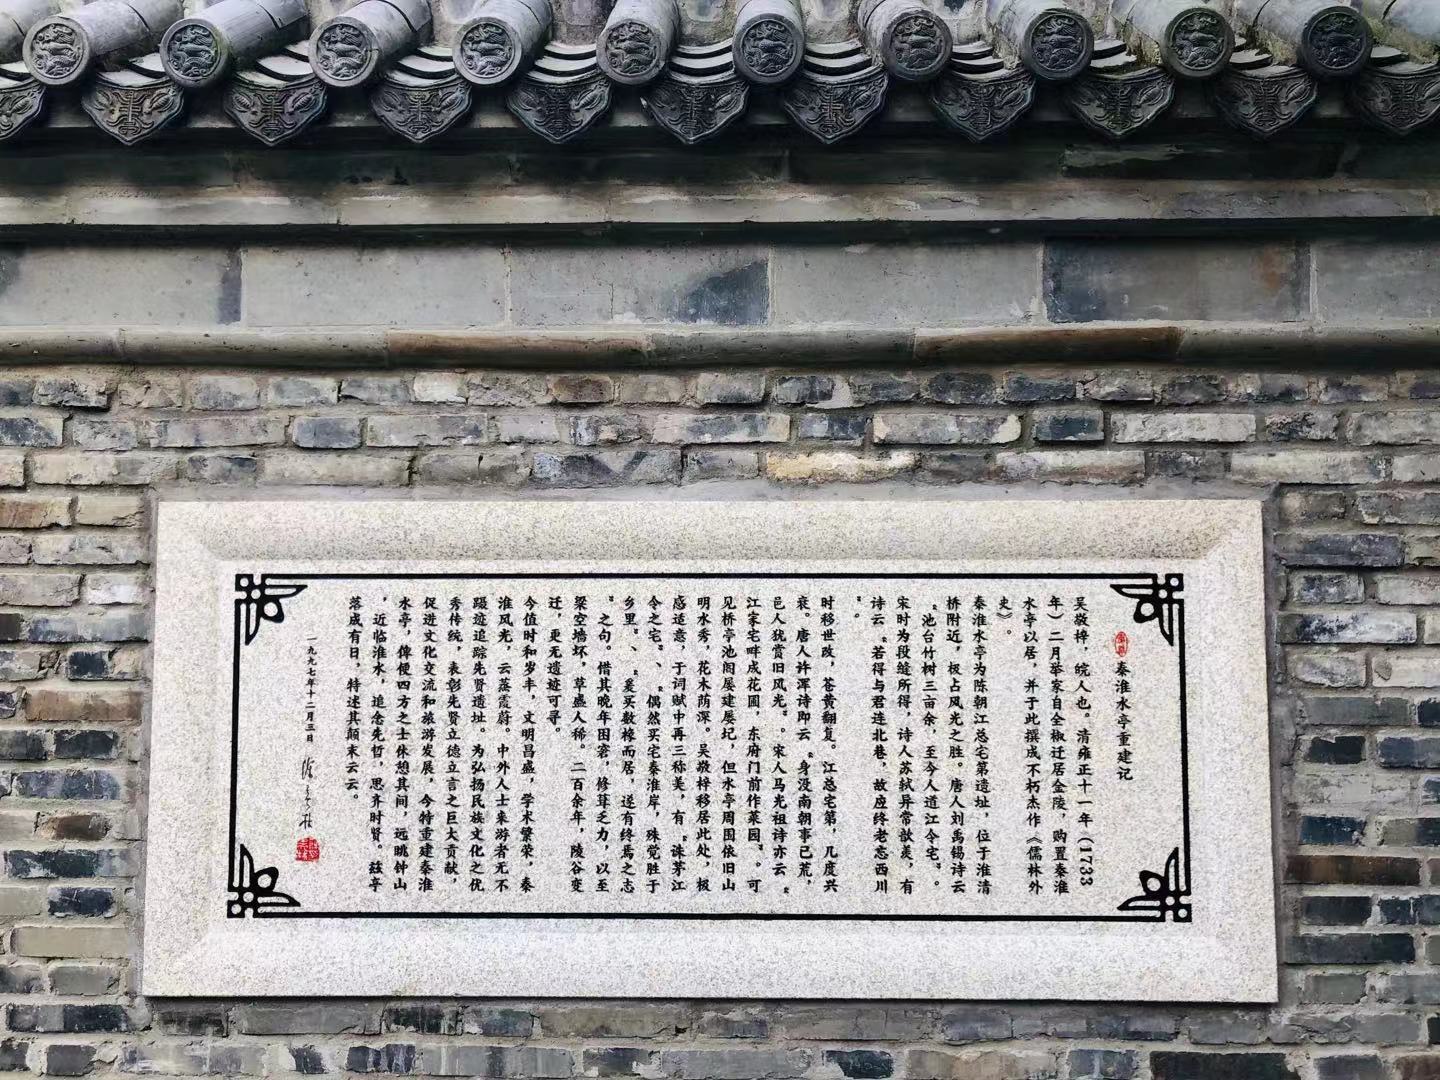 秦淮水亭重建记
吴敬梓，皖人也。清雍正十一年（1733
年）二月举家自全椒迁居金陵，购置秦淮
水亭以居，并于此撰成不朽杰作《儒林外
史》。
秦淮水亭为陈朝江总宅第遗址，位于淮清
桥附近，极占风光之胜。唐人刘禹锡诗云
“池台竹树三亩余，至今人道江令宅”。
宋时为段缝所得，诗人苏轼异常歆羡，有
诗云“若得与君连北巷，故应终老忘西川
”。
时移世改，苍黄翻复。江总宅第，几度兴
衰。唐人许浑诗即云“身没南朝事已荒，
邑人犹赏旧风光”。宋人马光祖诗亦云“
江家宅畔成花圃，东府门前作菜园”。可
见桥亭池阁屡建屡圮，但水亭周围依旧山
明水秀，花木荫深。吴敬梓移居此处，极
感适意，于词赋中再三称美，有“诛茅江
令之宅”、“偶然买宅秦淮岸，殊觉胜于
乡里”、“爰买数椽而居，遂有终焉之志
”之句。惜其晚年困窘，修葺乏力，以至
梁空墙坏，草盛人稀。二百余年，陵谷变
迁，更无遗迹可寻。
今值时和岁丰，文明昌盛，学术繁荣，秦
淮风光，云蒸霞蔚。中外人士来游者无不
蹑迹追踪先贤遗址。为弘扬民族文化之优
秀传统，表彰先贤立德立言之巨大贡献，
促进文化交流和旅游发展，今特重建秦淮
水亭，俾便四方之士休憩其间，远眺钟山
，近临淮水，追念先哲，思齐时贤。兹亭
落成有日，特述其颠末云云。
一九九七年十二月三日